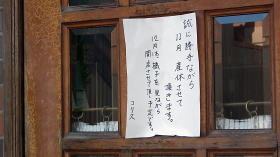 誠に勝手ながら
11月 産休させて
頂きます。
12月は 様子を見ながら
開店させて頂く予定です。
コリス